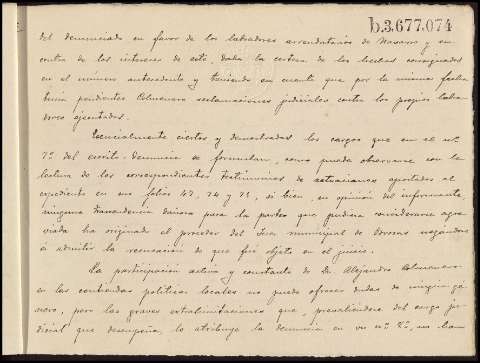 b.3.677.074
del denunciado en favor de los labradores arrendatarios de Navarro y en
contra de los intereses de este, dada la certeza de los hechos consignados
en el número antecedente y teniendo en cuenta que por la misma fecha
tenía pendientes Colmenero reclamaciones judiciales contra los propios labra-
dores ejecutados.
Esencialmente ciertos y demostrados los cargos que en el nº
7º del escrito-denuncia se formulan, como puede observarse con la
lectura de los correspondientes testimonios de actuaciones aportados al
expediente en sus folios 47, 74 y 71, si bien, en opinión del informante,
ninguna trascendencia dañosa para la partes que pudiera considerarse agra-
viada ha originado el proceder del Juez municipal de negándose
a admitir la recusación de que fué objeto en el juicio.
La participación activa y constante de D. Alejandro Colmenero
en las contiendas políticas locales no puede ofrecer dudas de ningún gé-
nero, pero las graves extralimitaciones que, prevaliéndose del cargo ju-
dicial que desempeña, le atribuye la denuncia en su nº 8º, no han